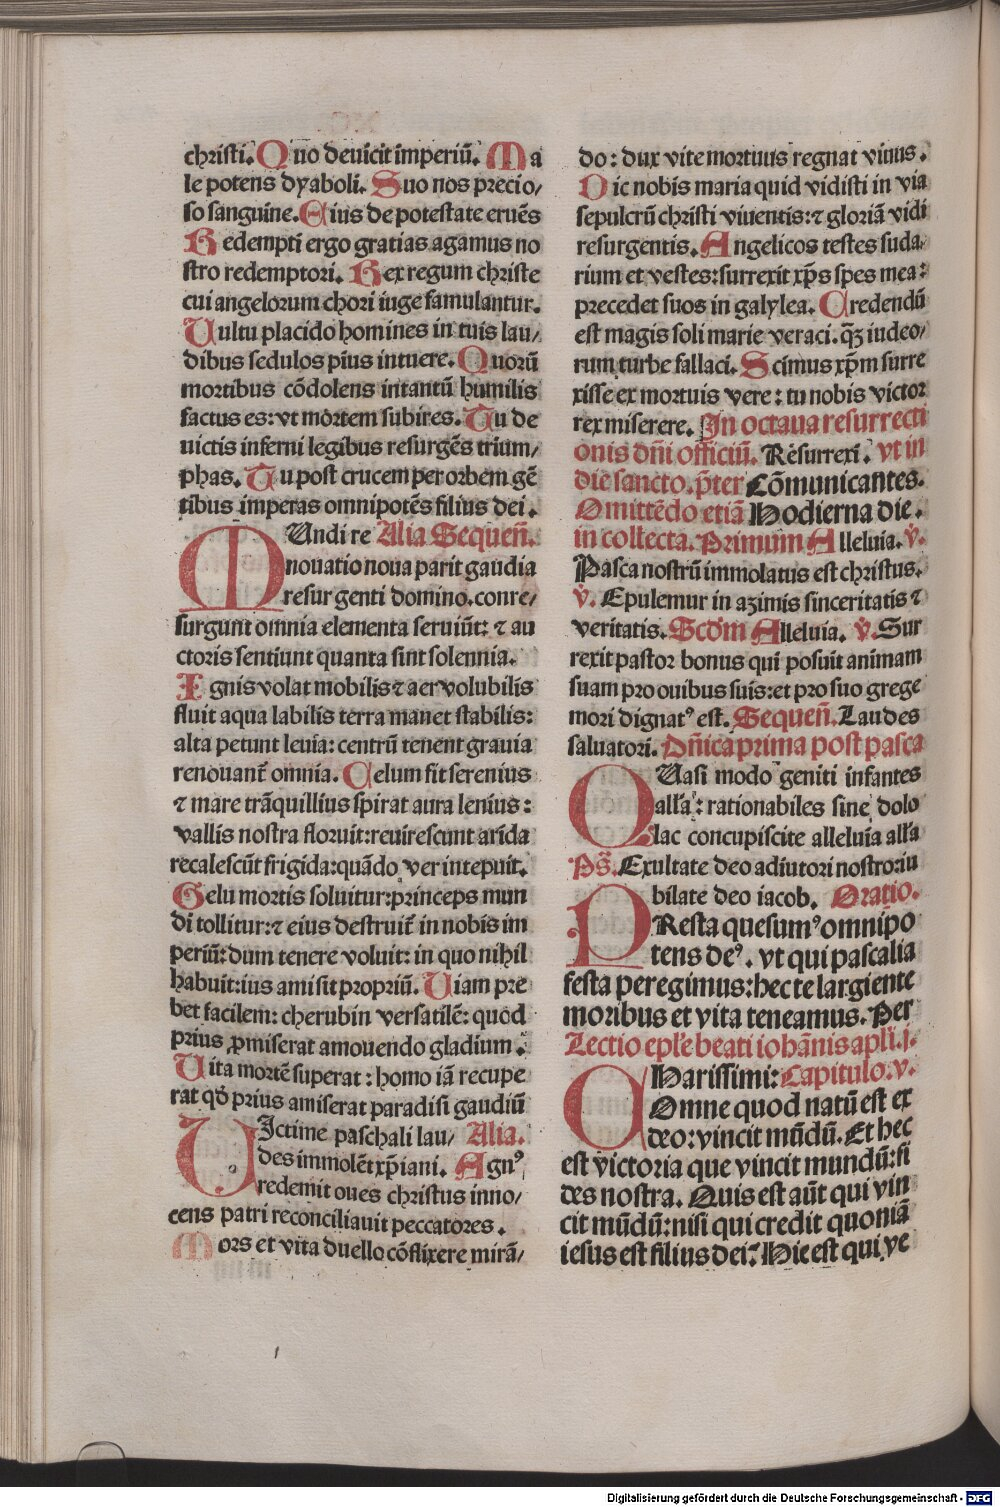 christi. Quo deuicit imperiū. Ma
le potens dyaboli. Suo nos precio/
so sanguine. Eius de potestate eruēs
Redempti ergo gratias agamus no
stro redemptori. Rex regum christe
cui angelorum chori iuge famulantur.
Uultu placido homines in tuis lau/
dibus sedulos pius intuere. Quorū
mortibus cōdolens intantū humilis
factus es: vt mortem subires. Tu de
uictis inferni legibus resurgēs trium/
phas. Tu post crucem per orbem gē
tibus imperas omnipotēs filius dei.
MUndi re Alia Sequen̄.
nouatio noua parit gaudia
resurgenti domino. conre/
surgunt omnia elementa seruiūt: ⁊ au
ctoris sentiunt quanta sint solennia.
Ignis volat mobilis ⁊ aer volubilis
fluit aqua labilis terra manet stabilis:
alta petunt leuia: centrū tenent grauia
renouant̄ omnia. Celum fit serenius
⁊ mare trāquillius spirat aura lenius:
vallis nostra floruit: reuirescunt arida
recalescūt frigida: quādo ver intepuit.
Gelu mortis soluitur: princeps mun
di tollitur: ⁊ eius destruit̄ in nobis im
periū: dum tenere voluit: in quo nihil
habuit: ius amisit propriū. Uiam pre
bet facilem: cherubin versatilē: quod
prius ꝓmiserat amouendo gladium.
Uita mortē superat: homo iā recupe
rat qđ prius amiserat paradisi gaudiū
UIctime paschali lau/ Alia.
des immolēt xp̄iani. Agnꝰ
redemit oues christus inno/
cens patri reconciliauit peccatores.
Mors et vita duello cōflixere mirā/
do: dux vite mortuus regnat viuus.
Dic nobis maria quid vidisti in via
sepulcrū christi viuentis: ⁊ gloriā vidi
resurgentis. Angelicos testes suda
rium et vestes: surrexit xp̄s spes mea:
precedet suos in galylea. Credendū
est magis soli marie veraci. qȝ iudeo/
rum turbe fallaci. Scimus xp̄m surre
xisse ex mortuis vere: tu nobis victor
rex miserere. In octaua resurrecti
onis dn̄i officiū. Resurrexi. vt in
die sancto. p̄ter Cōmunicantes.
Omittēdo etiā Hodierna die.
in collecta. Primum Alleluia. v̄.
Pasca nostrū immolatus est christus.
v̄. Epulemur in azimis sinceritatis ⁊
veritatis. Scd̄m Alleluia. v̄. Sur
rexit pastor bonus qui posuit animam
suam pro ouibus suis: et pro suo grege
mori dignatꝰ est. Sequen̄. Laudes
saluatori. Dn̄ica prima post pasca
QUasi modo geniti infantes
alľa: rationabiles sine dolo
lac concupiscite alleluia alľa
Ps̄. Exultate deo adiutori nostro: iu
bilate deo iacob. Oratio.
PResta quesumꝰ omnipo
tens deꝰ. vt qui pascalia
festa peregimus: hec te largiente
moribus et vita teneamus. Per
Lectio epľe beati iohānis apľi. j.
CHarissimi: Capitulo. v.
Omne quod natū est ex
deo: vincit mūdū. Et hec
est victoria que vincit mundū: fi
des nostra. Quis est aūt qui vin
cit mūdū: nisi qui credit quoniā
iesus est filius dei? Hic est qui ve
Digitalisierung gefördert durch die Deutsche Forschungsgemeinschaft - DFG